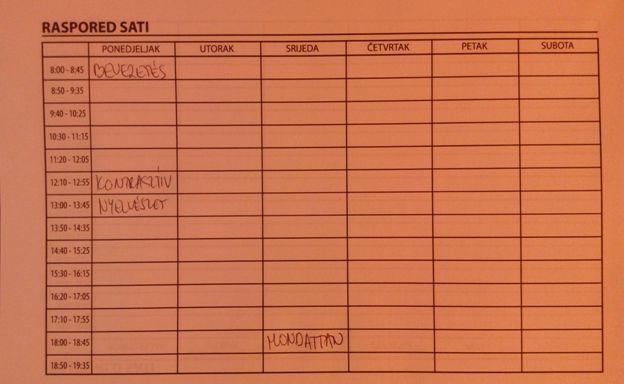 RASPORED SATI
PONEDJELJAK UTORAK SRIJEDA ČETVRTAK PETAK SUBOTA
8:00 - 8:45 BEVEZETÉS
8:50 - 9:35
9:40 - 10:25
10:30 - 11:15
11:20 - 12:05
12:10 - 12:55 KONTRASZTÍV
13:00 - 13:45 NYELVÉSZET
13:50 - 14:35
14:40 - 15:25
15:30 - 16:15
16:20 - 17:05
17:10 - 17:55
18:00 - 18:45 MONDATTAN
18:50 - 19:35